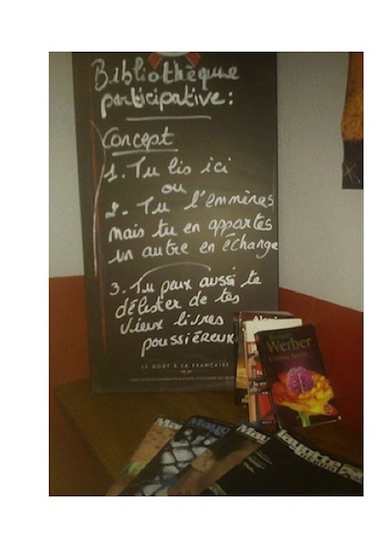 Bibliothèque
participative:
Concept
1. Tu lis ici
ou
2- Tu l'emmènes
mais tu en apportes
un autre en échange
3. Tu peux aussi te
délester de tes
vieux livres
poussiéreux
LE GOÛT À LA FRANÇAISE
Werber